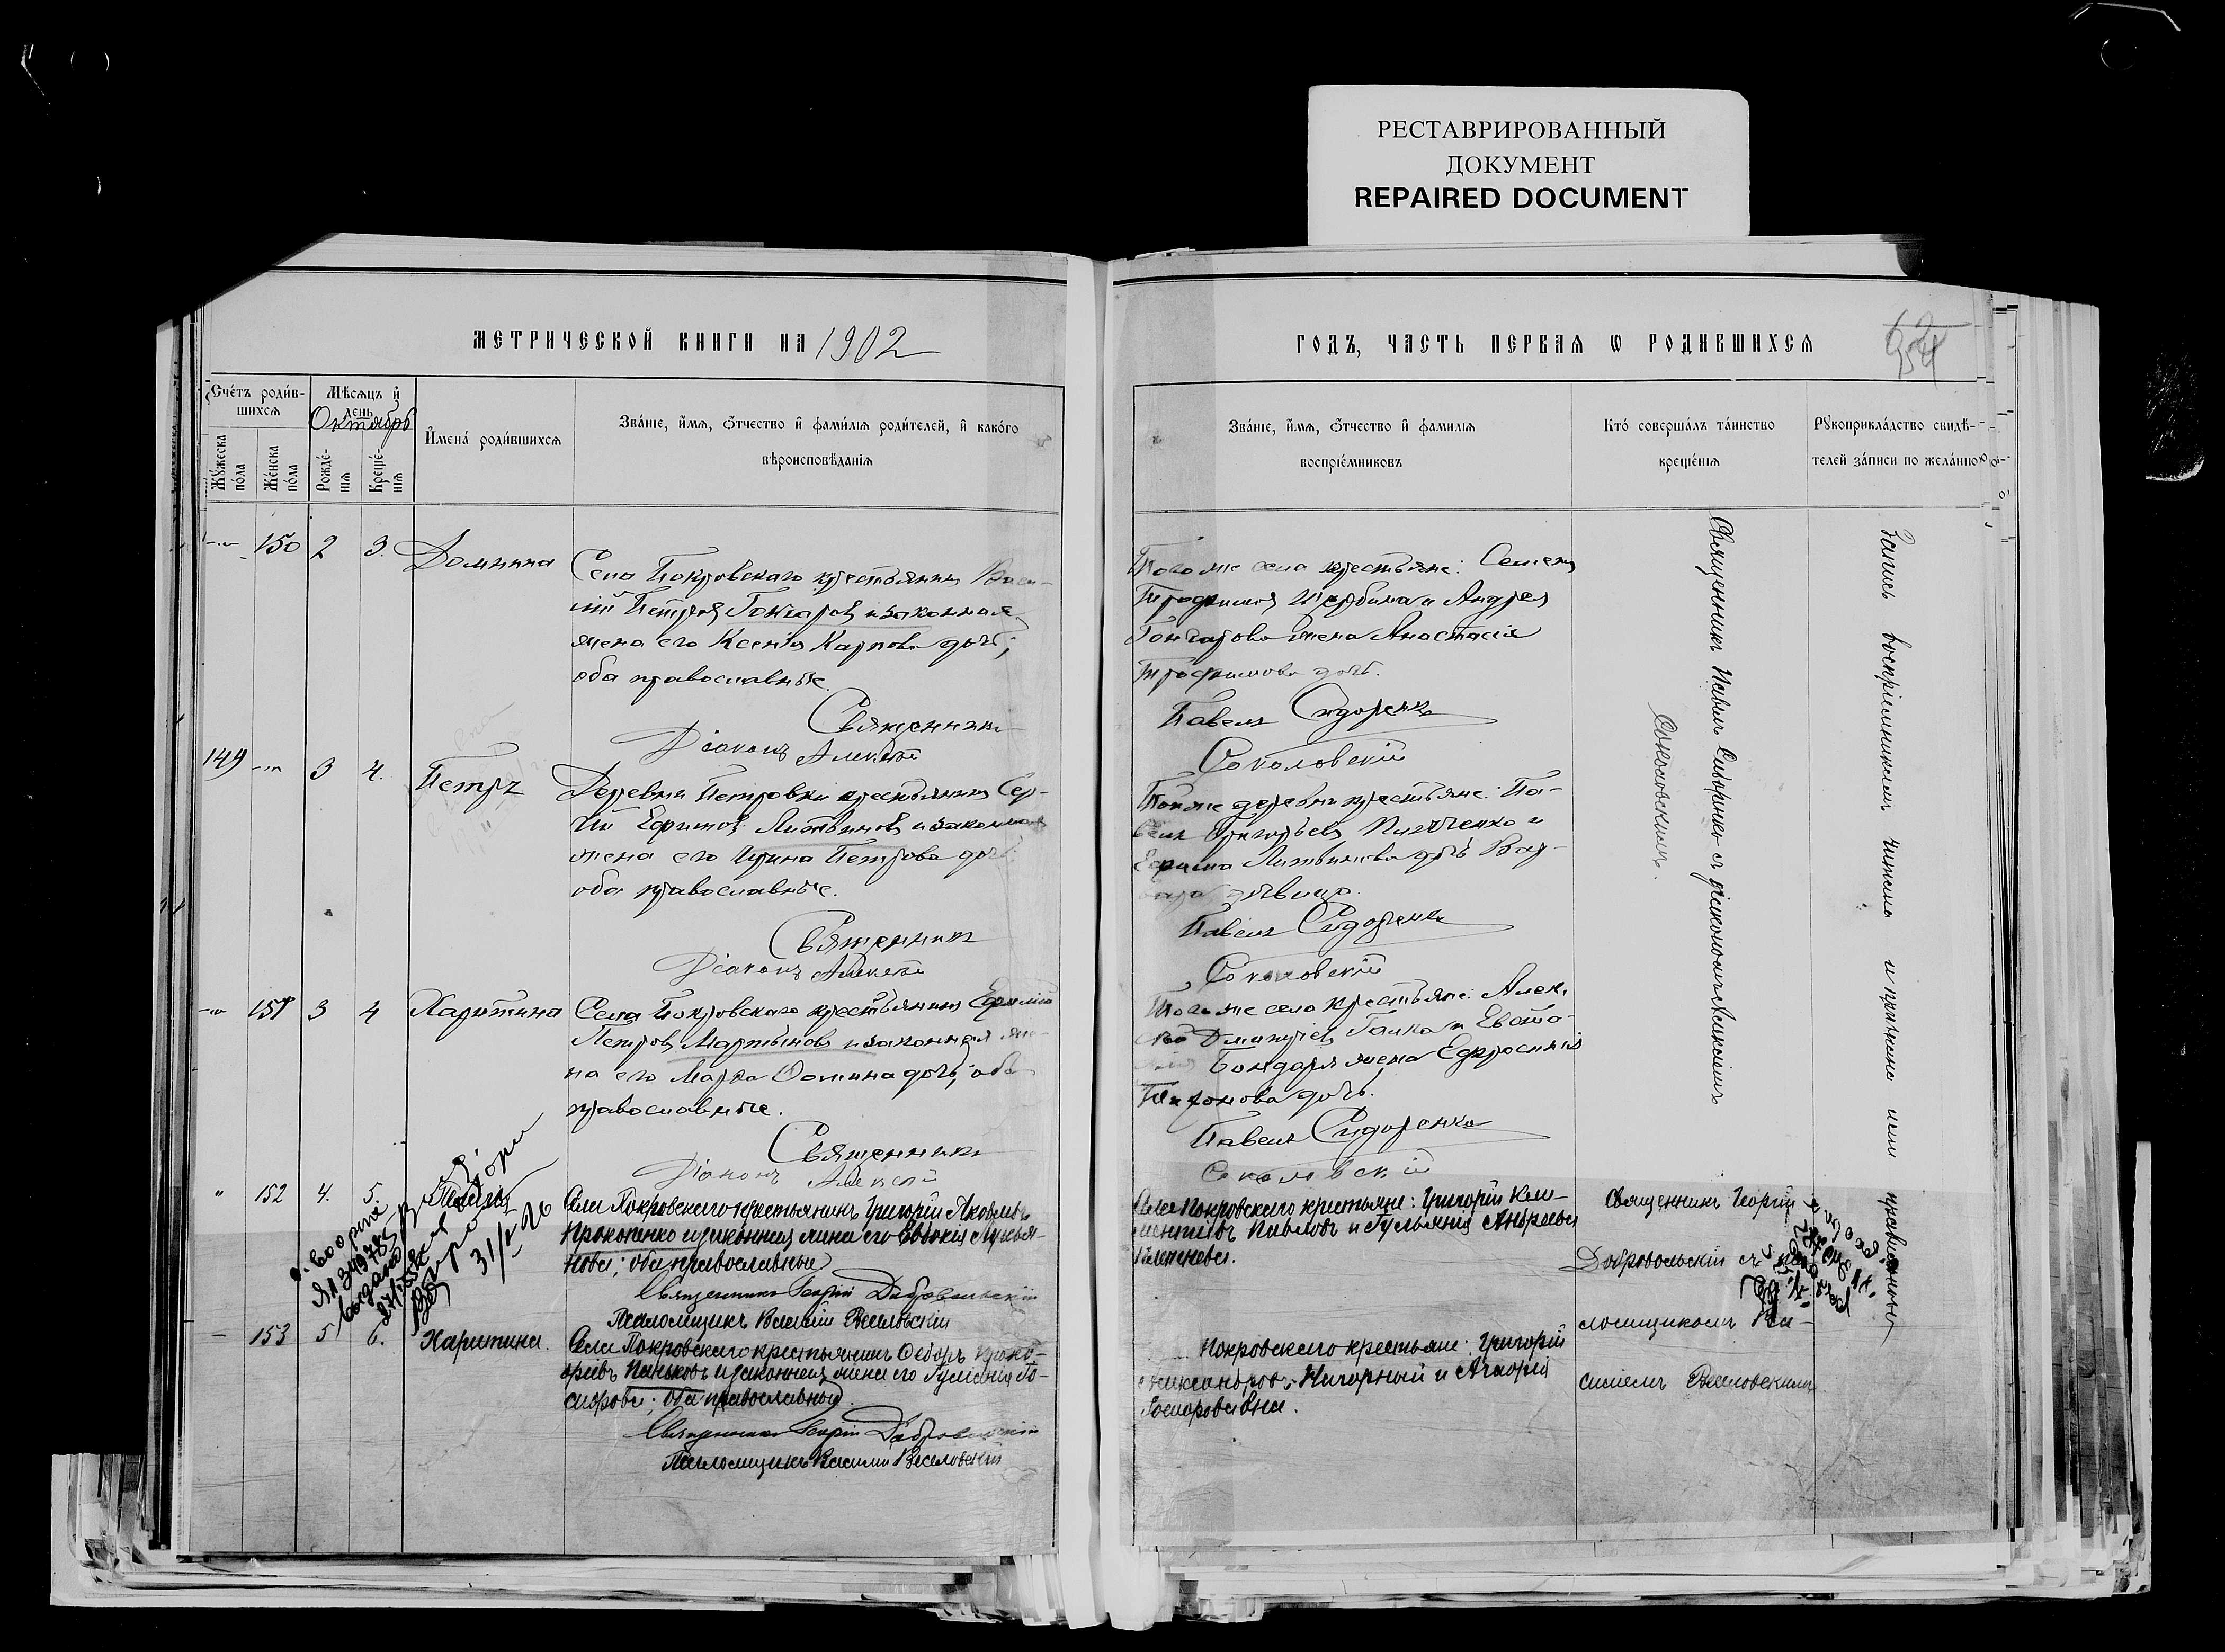 РЕСТАВРИРОВАННЫЙ
ДОКУМЕНТ
REPAIRED DOCUMENT
МЕТРИЧЕСКОЙ КНИГИ НА 1902
Счетъ родившихся
Мѣсяцъ и день
Октябрь
Мужеска пола
Женска пола
Рождѐнія
Крещенія
Имена родившихся
Званіе, имя, отчество и фамилія родителей, и какого
вѣроисповѣданія
150 2 3. Домнина
Села Покровскаго крестьянинъ Васи-
лій Петровъ Гончаровъ и законная
жена его Ксенія Карпова дочь;
оба православные.
Священникъ
Діаконъ Алексѣй
149 3 4. Петръ
Деревни Петровки крестьянинъ Сер-
гій Ефимовъ Литвиновъ и законная
жена его Ирина Петрова дочь
оба православные.
Священникъ
Діаконъ Алексѣй
151 3 4 Харитина
Села Покровскаго крестьянинъ
Петровъ Мартыновъ и законная же-
на его Марѳа Ѳомина дочь, оба
православные.
Священникъ
Діаконъ Алексѣй
" 152 4. 5.
Села Покровскаго крестьянинъ Григорій Яковлевъ
Прокопенко и законная жена его Евдокія Лукья-
нова; оба православные
Священникъ Георгій Добровольскій
Псаломщикъ Василій Веселовскій
31/X 26
— 153 5 6. Харитина.
Села Покровскаго крестьянинъ Ѳедоръ
Паньковъ и законная жена его
оба православные.
Священникъ Георгій Добровольскій
Псаломщикъ Василій Веселовскій
ГОДЪ, ЧАСТЬ ПЕРВАЯ Ѡ РОДИВШИХСЯ
Званіе, имя, отчество и фамилія
воспріемниковъ
Кто совершалъ таинство
крещенія
Рукоприкладство свидѣ-
телей записи по желанію
Того же села крестьяне: Семенъ
Трофимовъ Щербина и Андрея
Гончарова жена Анастасія
Трофимова дочь.
Павелъ Сидоренко
Соколовскій
Той же деревни крестьяне: Па-
велъ Григорьевъ и
Ефима Литвинова дочь Вар-
вара дѣвица.
Павелъ Сидоренко
Соколовскій
Того же села крестьяне: Алек-
сѣй Дмитріевъ Галка и
Бондаря жена Евфросинія
Тихонова дочь.
Павелъ Сидоренко
Соколовскій
Села Покровскаго крестьяне: Григорій Кли-
ментіевъ Павловъ и Гульянія Андреева
Покровскаго крестьяне: Григорій
Нагорный и Агафія
Священникъ Павелъ Сидоренко съ діакономъ Алексѣемъ
Соколовскимъ.
Священникъ Георгій
Добровольскій съ пса-
ломщикомъ Ва-
силіемъ Веселовскимъ
Запись воспріемникамъ читана и признана ими правильною